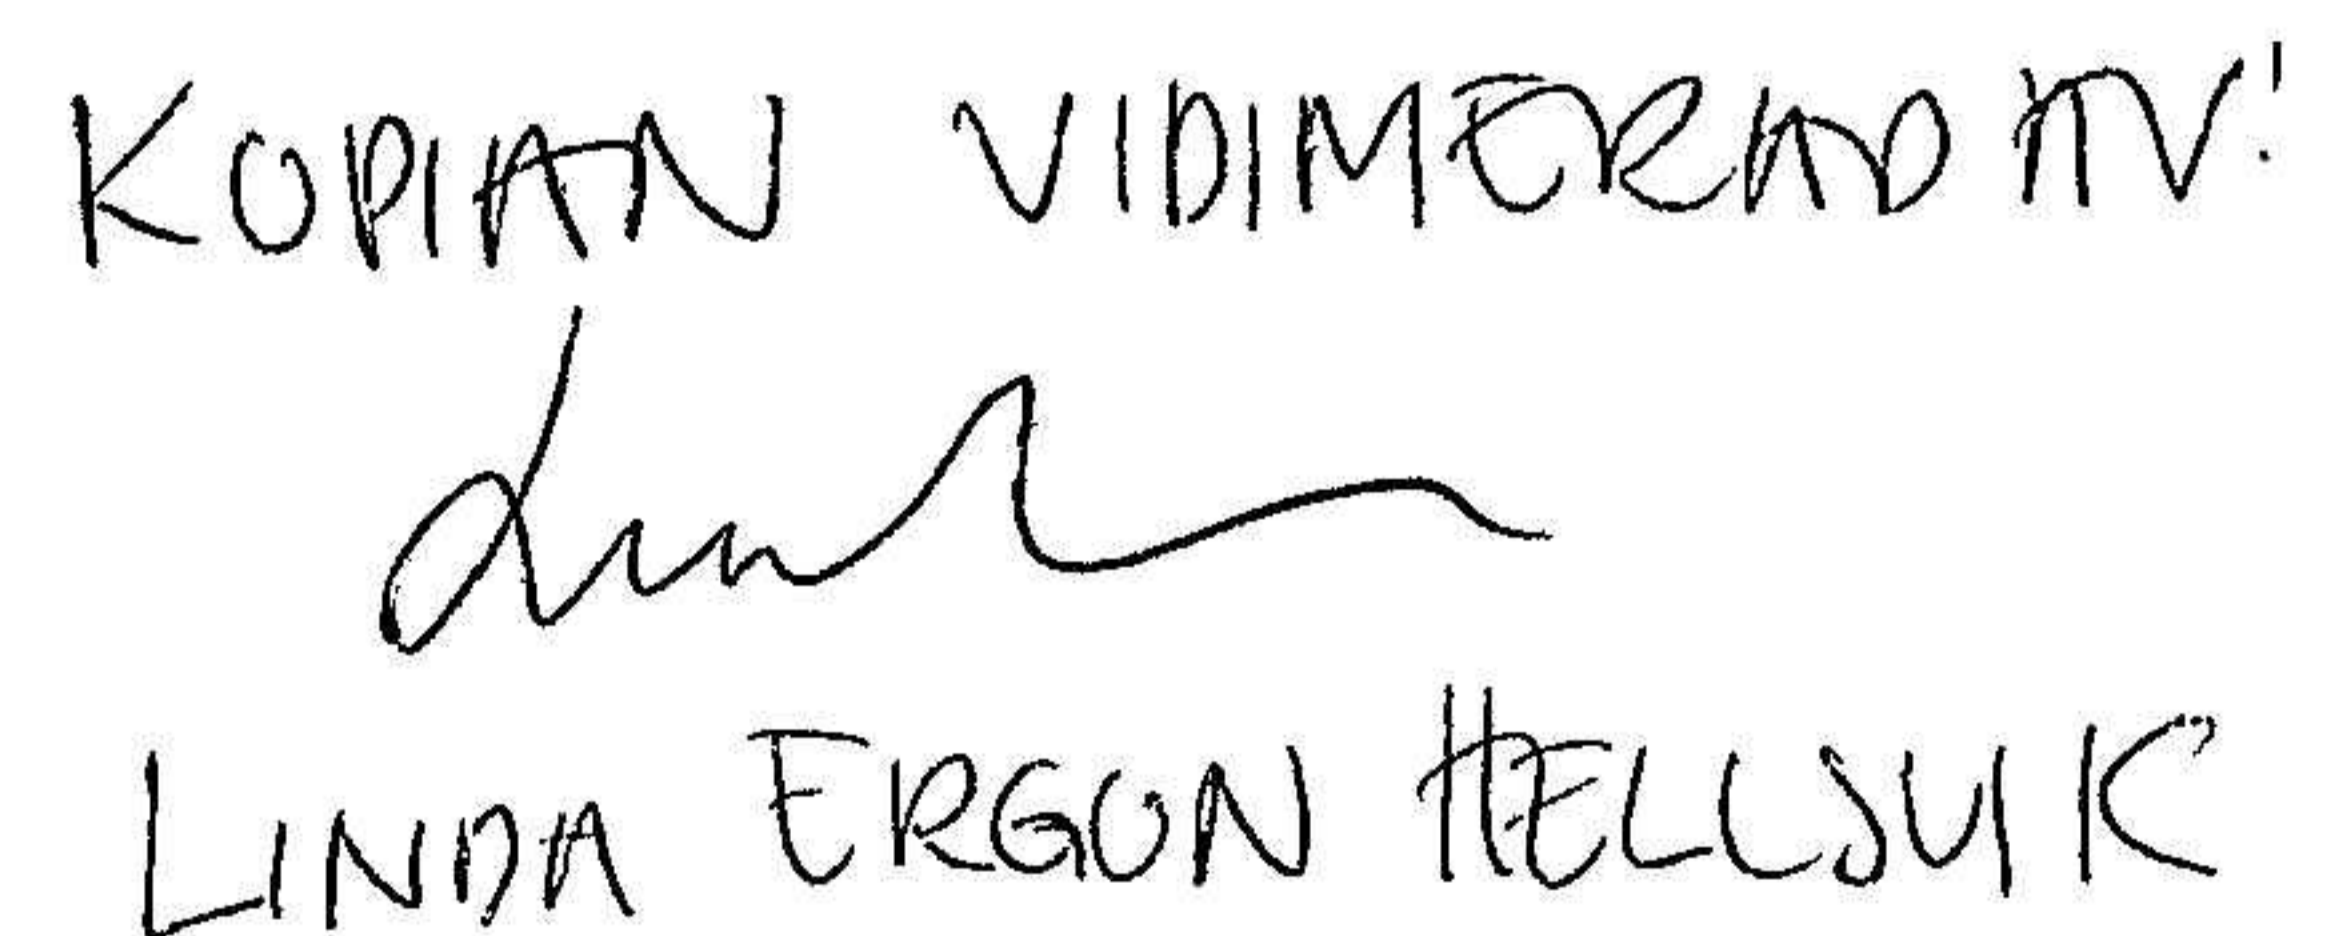 KOPIAN VIDIMERAD AV!
LINDA ERGON HELLSVIK